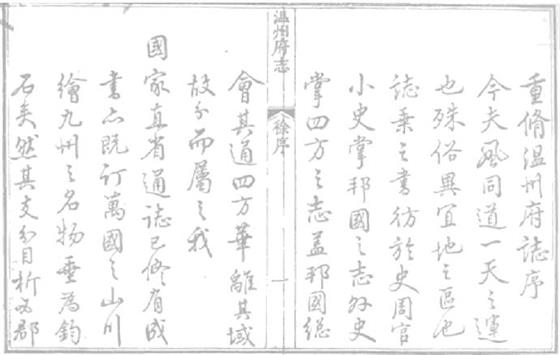 重脩温州府誌序
今夫風同道一天之運
也殊俗異宜地之區也
誌乗之書彷於史周官
小史掌邦國之志外史
掌四方之志蓋邦國總
温州府志
徐序
一
會其通四方華離其域
故分而屬之我
國家直省通誌已修有成
書亦既訂萬國之山川
繪九州之名物垂為鈞
石矣然其支分目析為郡